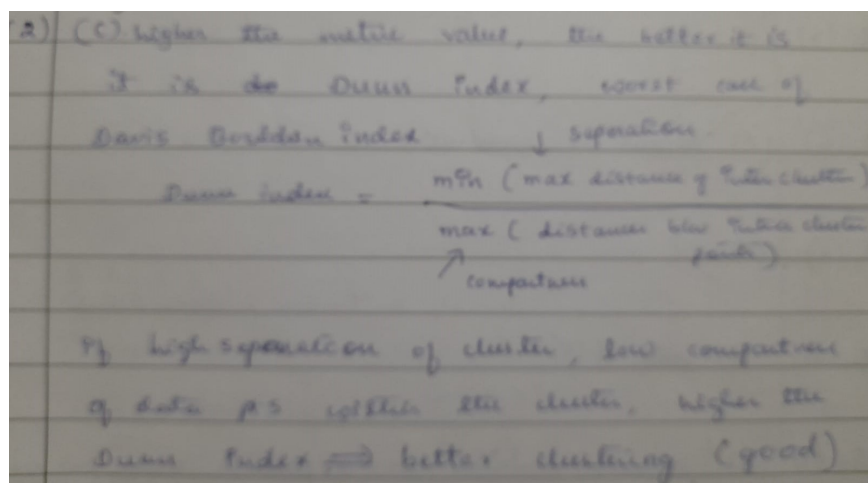 2) (C) higher the metric value, the better it is
it is Dunn Index, worst case of
Davis index ↓ separation.
Dunn index = min (max distance of inter cluster)
max ( distances b/w intra cluster
points)
↗ compactness
If high separation of cluster, low compactness
of data pts within the cluster, higher the
Dunn Index ⟹ better clustering (good)